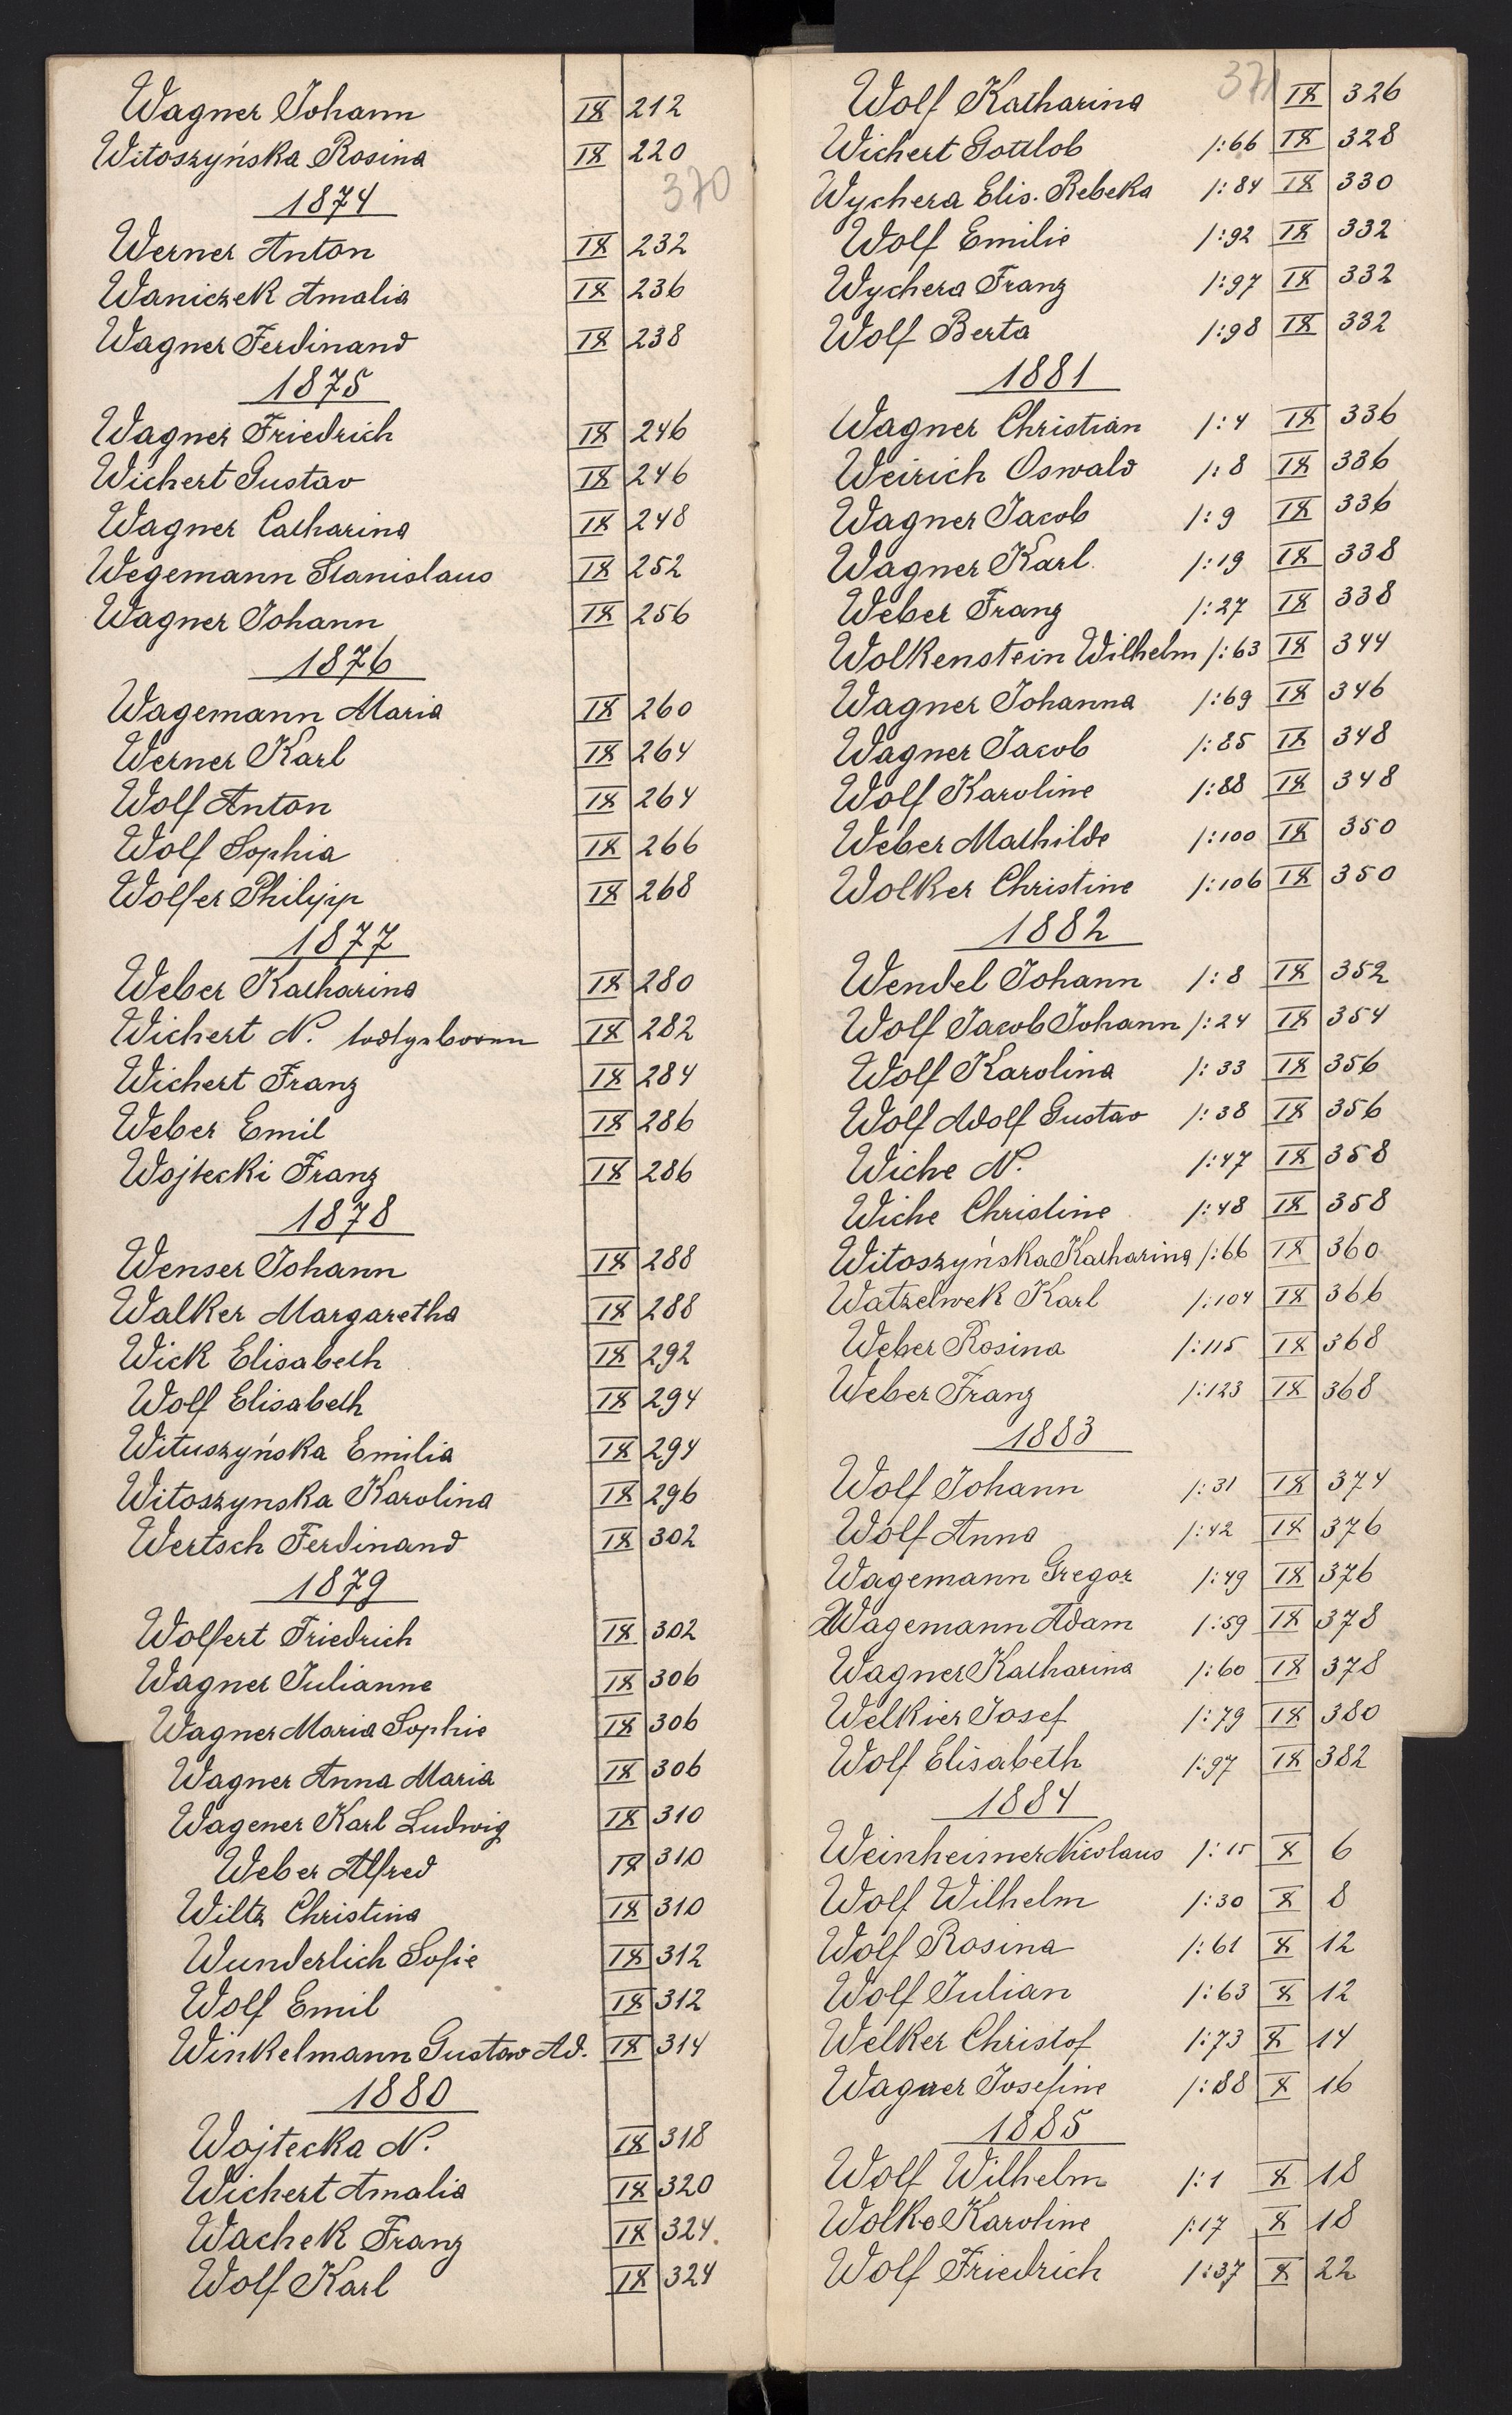 Wagner Johann IX 212
Witoszyńska Rosina IX 220
370
1874
Werner Anton IX 232
Waniczek Amalia IX 236
Wagner Ferdinand IX 238
1875
Wagner Friedrich IX 246
Wichert Gustav IX 246
Wagner Catharina IX 248
Wegemann Stanislaus IX 252
Wagner Johann IX 256
1876
Wagemann Maria IX 260
Werner Karl IX 264
Wolf Anton IX 264
Wolf Sophia IX 266
Wolfer Philipp IX 268
1877
Weber Katharina IX 280
Wichert N. todtgeboren IX 282
Wichert Franz IX 284
Weber Emil IX 286
Wojtecki Franz IX 286
1878
Wenser Johann IX 288
Walker Margaretha IX 288
Wick Elisabeth IX 292
Wolf Elisabeth IX 294
Wituszyńska Emilia IX 294
Witoszynska Karolina IX 296
Wertsch Ferdinand IX 302
1879
Wolfert Friedrich IX 302
Wagner Julianne IX 306
Wagner Maria Sophie IX 306
Wagner Anna Maria IX 306
Wagener Karl Ludwig IX 310
Weber Alfred IX 310
Wiltz Christina IX 310
Wunderlich Sofie IX 312
Wolf Emil IX 312
Winkelmann Gustav Ad. IX 314
1880
Wojtecka N. IX 318
Wichert Amalia IX 320
Wachek Franz IX 324.
Wolf Karl IX 324
371
Wolf Katharina IX 326
Wichert Gottlob /:66 IX 328
Wychera Elis. Rebeka /:84 IX 330
Wolf Emilie /:92 IX 332
Wychera Franz /:97 IX 332
Wolf Berta /:98 IX 332
1881
Wagner Christian /:4 IX 336
Weirich Oswald /:8 IX 336
Wagner Jacob /:9 IX 336
Wagner Karl /:19 IX 338
Weber Franz /:27 IX 338
Wolkenstein Wilhelm /:63 IX 344
Wagner Johanna /:69 IX 346
Wagner Jacob /:85 IX 348
Wolf Karoline /:88 IX 348
Weber Mathilde /:100 IX 350
Wolker Christine /:106 IX 350
1882
Wendel Johann /:8 IX 352
Wolf Jacob Johann /:24 IX 354
Wolf Karolina /:33 IX 356
Wolf Adolf Gustav /:38 IX 356
Wiche N. /:47 IX 358
Wiche Christine /:48 IX 358
Witoszyńska Katharina /:66 IX 360
Watzelwek Karl /:104 IX 366
Weber Rosina /:115 IX 368
Weber Franz /:123 IX 368
1883
Wolf Johann /:31 IX 374
Wolf Anna /:42 IX 376
Wagemann Gregor /:49 IX 376
Wagemann Adam /:59 IX 378
Wagner Katharina /:60 IX 378
Welkier Josef /:79 IX 380
Wolf Elisabeth /:97 IX 382
1884
Weinheimer Nicolaus /:15 X 6
Wolf Wilhelm /:30 X 8
Wolf Rosina /:61 X 12
Wolf Julian /:63 X 12
Welker Christof /:73 X 14
Wagner Josefine /:88 X 16
1885
Wolf Wilhelm /:1 X 18
Wolke Karoline /:17 X 18
Wolf Friedrich /:37 X 22